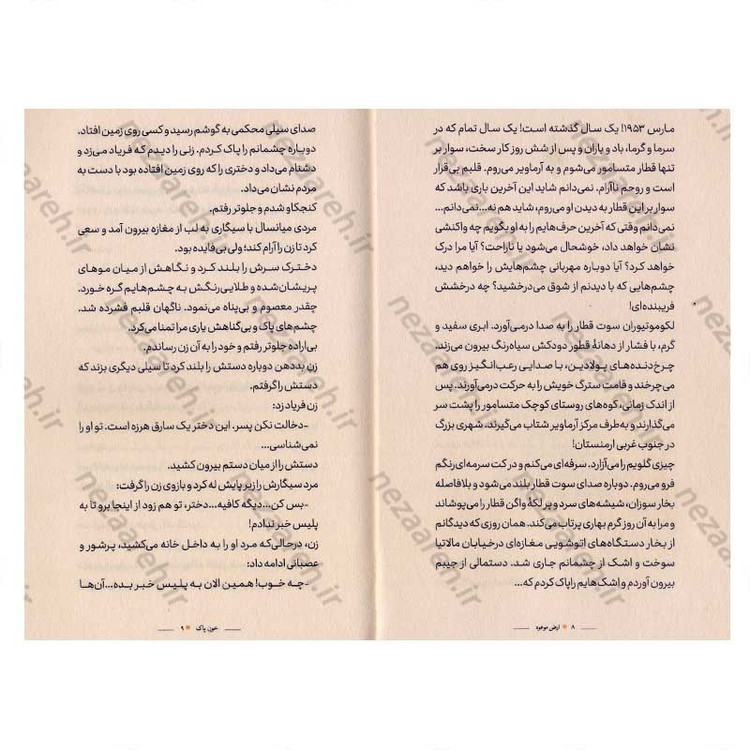 مارس ۱۹۵۳! یک سال گذشته است! یک سال تمام که در
سرما و گرما، باد و باران و پس از شش روز کار سخت، سوار بر
تنها قطار متسامور می‌شوم و به آرماویر می‌روم. قلبم بی‌قرار
است و روحم ناآرام. نمی‌دانم شاید این آخرین باری باشد که
سوار بر این قطار به دیدن او می‌روم، شاید هم نه...نمی‌دانم...
نمی‌دانم وقتی که آخرین حرف‌هایم را به او بگویم چه واکنشی
نشان خواهد داد، خوشحال می‌شود یا ناراحت؟ آیا مرا درک
خواهد کرد؟ آیا دوباره مهربانی چشم‌هایش را خواهم دید،
چشم‌هایی که با دیدنم از شوق می‌درخشید؟ چه درخشش
فریبنده‌ای!
لکوموتیوران سوت قطار را به صدا درمی‌آورد. ابری سفید و
گرم، با فشار از دهانهٔ قطور دودکش سیاه‌رنگ بیرون می‌زند.
چرخ‌دنده‌های پولادین، با صدایی رعب‌انگیز روی هم
می‌چرخند و قامت سترگ خویش را به حرکت درمی‌آورند. پس
از اندک زمانی، کوه‌های روستای کوچک متسامور را پشت سر
می‌گذارند و به‌طرف مرکز آرماویر شتاب می‌گیرند. شهری بزرگ
در جنوب غربی ارمنستان!
چیزی گلویم را می‌آزارد. سرفه‌ای می‌کنم و در کت سرمه‌ای‌رنگم
فرو می‌روم. دوباره صدای سوت قطار بلند می‌شود و بلافاصله
بخار سوزان، شیشه‌های سرد و پر لکهٔ واگن قطار را می‌پوشاند
و مرا به آن روز گرم بهاری پرتاب می‌کند. همان روزی که دیدگانم
از بخار دستگاه‌های اتوشویی مغازه‌ای در خیابان مالاتیا
سوخت و اشک از چشمانم جاری شد. دستمالی از جیبم
بیرون آوردم و اشک‌هایم را پاک کردم که...
۸ ارض موعود
صدای سیلی محکمی به گوشم رسید و کسی روی زمین افتاد.
دوباره چشمانم را پاک کردم. زنی را دیدم که فریاد می‌زد و
دشنام می‌داد و دختری را که روی زمین افتاده بود با دست به
مردم نشان می‌داد.
کنجکاو شدم و جلوتر رفتم.
مردی میانسال با سیگاری به لب از مغازه بیرون آمد و سعی
کرد تا زن را آرام کند؛ ولی بی‌فایده بود.
دخترک سرش را بلند کرد و نگاهش از میان موهای
پریشان‌شده و طلایی‌رنگش به چشم‌هایم گره خورد.
چقدر معصوم و بی‌پناه می‌نمود. ناگهان قلبم فشرده شد.
چشم‌های پاک و بی‌گناهش یاری مرا تمنا می‌کرد.
بی‌اراده جلوتر رفتم و خود را به آن زن رساندم.
زن بددهن دوباره دستش را بلند کرد تا سیلی دیگری بزند که
دستش را گرفتم.
زن فریاد زد:
-دخالت نکن پسر. این دختر یک سارق هرزه است. تو او را
نمی‌شناسی...
دستش را از میان دستم بیرون کشید.
مرد سیگارش را زیر پایش له کرد و بازوی زن را گرفت:
-بس کن...دیگه کافیه...دختر، تو هم زود از اینجا برو تا به
پلیس خبر ندادم!
زن، درحالی‌که مرد او را به داخل خانه می‌کشید، پرشور و
عصبانی ادامه داد:
-چه خوب! همین الان به پلیس خبر بده...آن‌ها
خون پاک ۹
nezaareh.ir